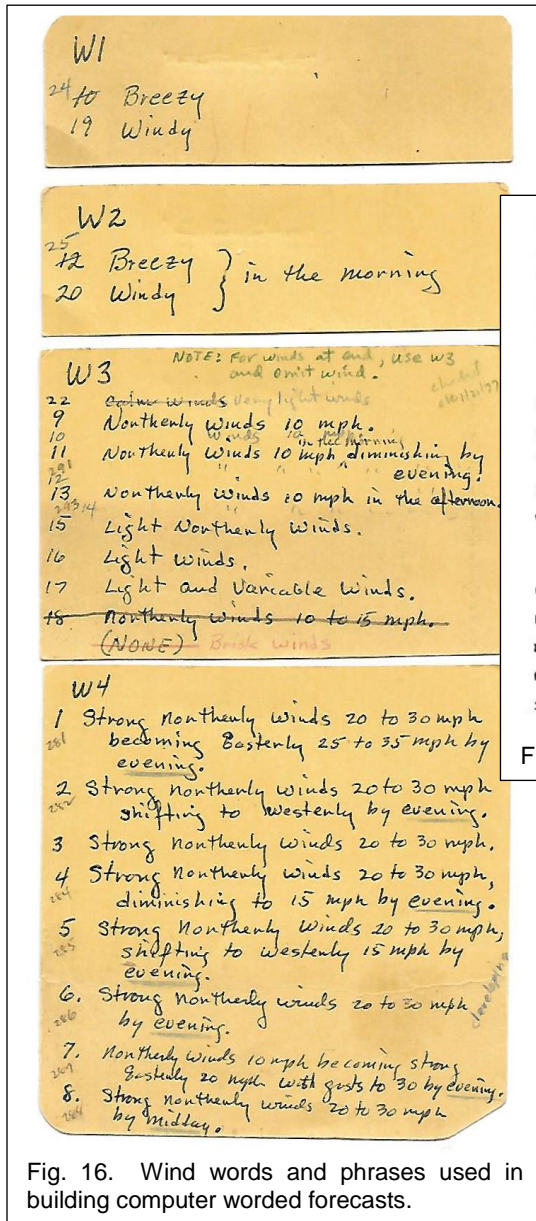 W1
24 10 Breezy
19 Windy
W2
25
12 Breezy } in the morning
20 Windy
NOTE: For winds at end, use W3
and omit wind.
W3
22 Calm winds Very light winds
9 Northerly winds 10 mph.
10 Winds 10 mph in the morning
11 Northerly winds 10 mph diminishing by
291 evening.
12 " " " "
13 Northerly winds 10 mph in the afternoon.
293, 14
15 Light Northerly winds.
16 Light winds.
17 Light and Variable Winds.
18 Northerly winds 10 to 15 mph.
(NONE) Brisk winds
W4
1 Strong Northerly winds 20 to 30 mph
281 becoming Easterly 25 to 35 mph by
evening.
2 Strong Northerly winds 20 to 30 mph
282 shifting to westerly by evening.
3 Strong Northerly winds 20 to 30 mph.
4 Strong Northerly winds 20 to 30 mph,
284 diminishing to 15 mph by evening.
5 Strong Northerly winds 20 to 30 mph,
285 shifting to westerly 15 mph by
evening.
6. Strong Northerly winds 20 to 30 mph developing
286 by evening.
7. Northerly winds 10 mph becoming strong
287 Easterly 20 mph with gusts to 30 by evening.
8. Strong Northerly winds 20 to 30 mph
288 by midday.
F
Fig. 16. Wind words and phrases used in
building computer worded forecasts.